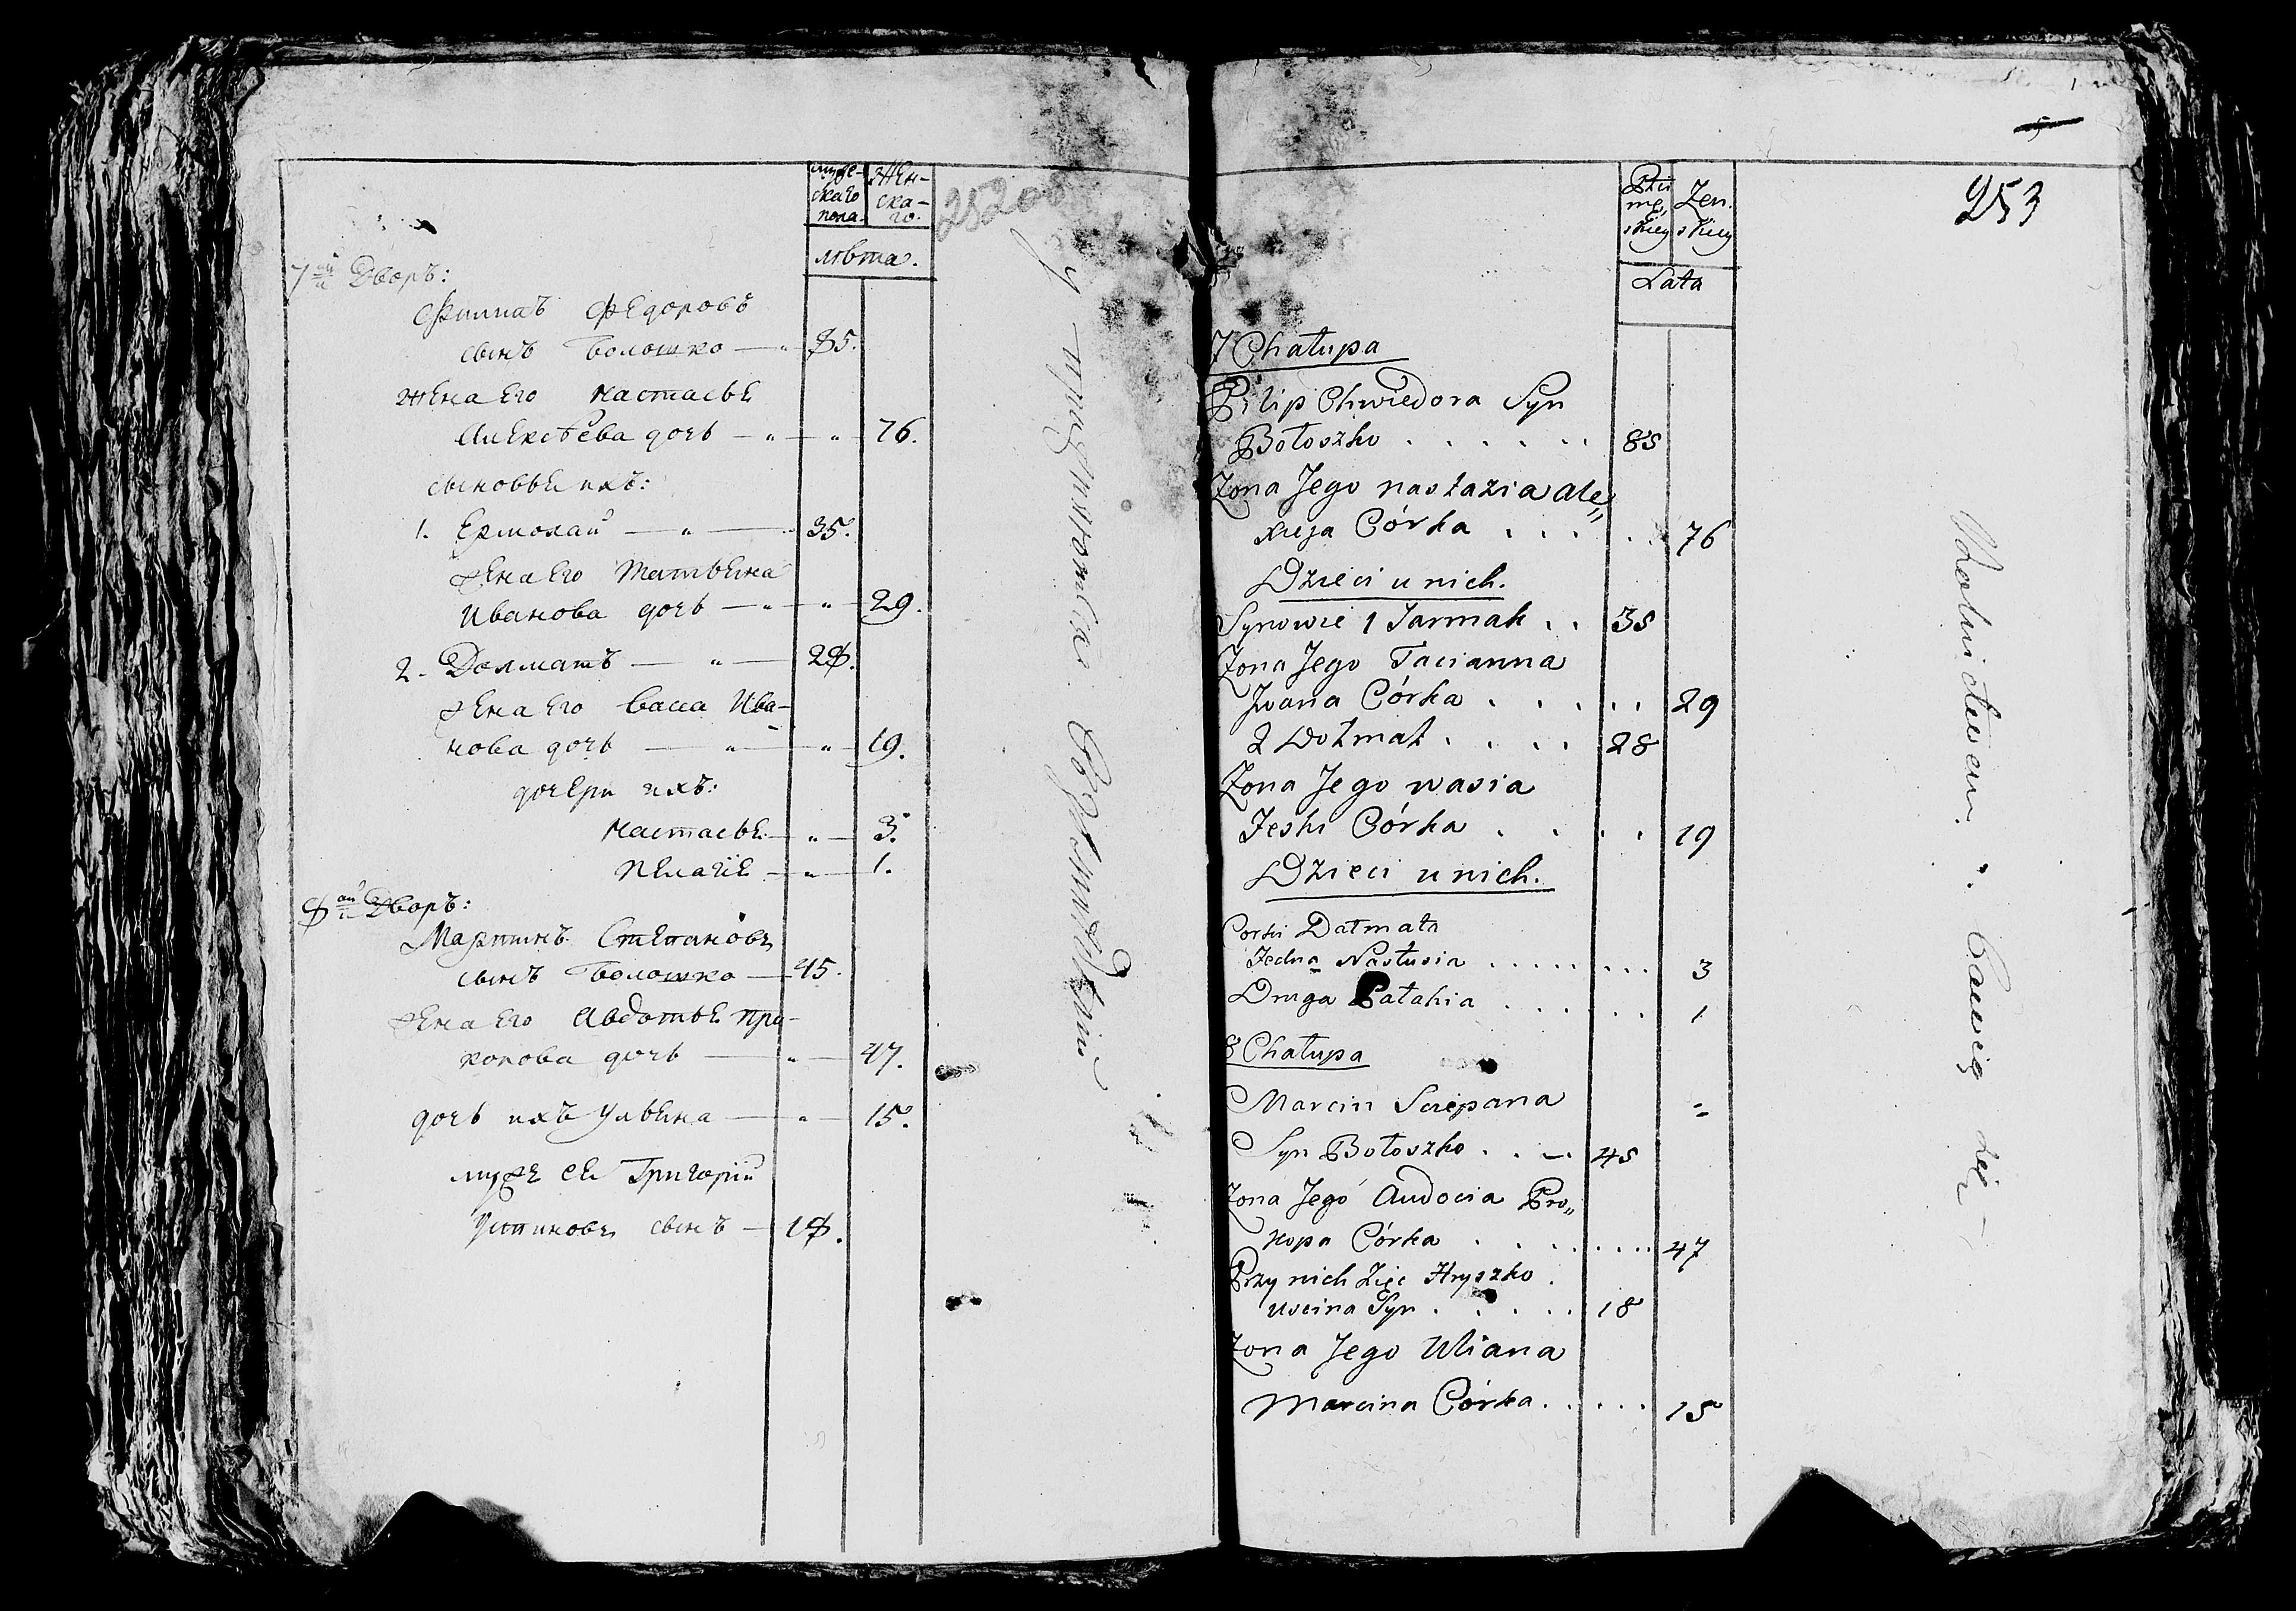 муже-
скаго
пола.
Жен-
ска-
го.
лѣта.
25200
7ый Дворъ:
Филипъ Федоровъ
сынъ Болошко — " 85.
жена его настасье
Алексѣева дочь — " — " 76.
сыновье ихъ:
1. Ермолай — " — 35.
жена его татьеяна
Иванова дочь — " — " 29.
2. Долматъ — " — 28.
жена его васса Ива-
нова дочь — " — " 19.
дочери ихъ:
настасье — " — 3.
пелагіе — " — 1.
8ый Дворъ:
Мартинъ Степановъ
сынъ Болошко — 45.
жена его Авдотье про-
копова дочь — " — 47.
дочь ихъ ульеяна — " — 15.
мужъ ее Григорій
Устиновъ сынъ — 18.
253
Płci
mę,
skiey
Żen.
skiey
Lata
7 Chałupa
Filip Chwiedora Syn
Bołoszko . . . . . . 85
Żona Jego nastazia ale,,
xieja Córka . . . . . . 76
Dzieci u nich.
Synowie 1 Jarmak . . 35
Żona Jego Tacianna
Jwana Córka . . . . . . 29
2 Dołmat . . . . 28
Żona Jego wasia
Jeski Córka . . . . 19
Dzieci u nich.
Corki Dałmata
Jedna Nastusia . . . . . . . . 3
Druga Pałahia . . . . . . . 1
8 Chałupa
Marcin Sciepana =
Syn Bołoszko . . – . 45
Żona Jego Audocia Pro,,
kopa Córka . . . . . . . . 47
Przy nich Zięc Hryszko .
Uscina Syn . . . . . 18
Żona Jego Uliana
Marcina Córka . . . . . 15